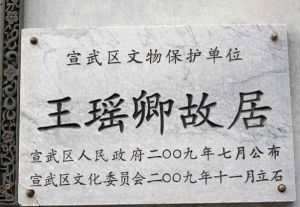 宣武区文物保护单位
王瑶卿故居
宣武区人民政府二〇〇九年七月公布
宣武区文化委员会二〇〇九年十一月立石